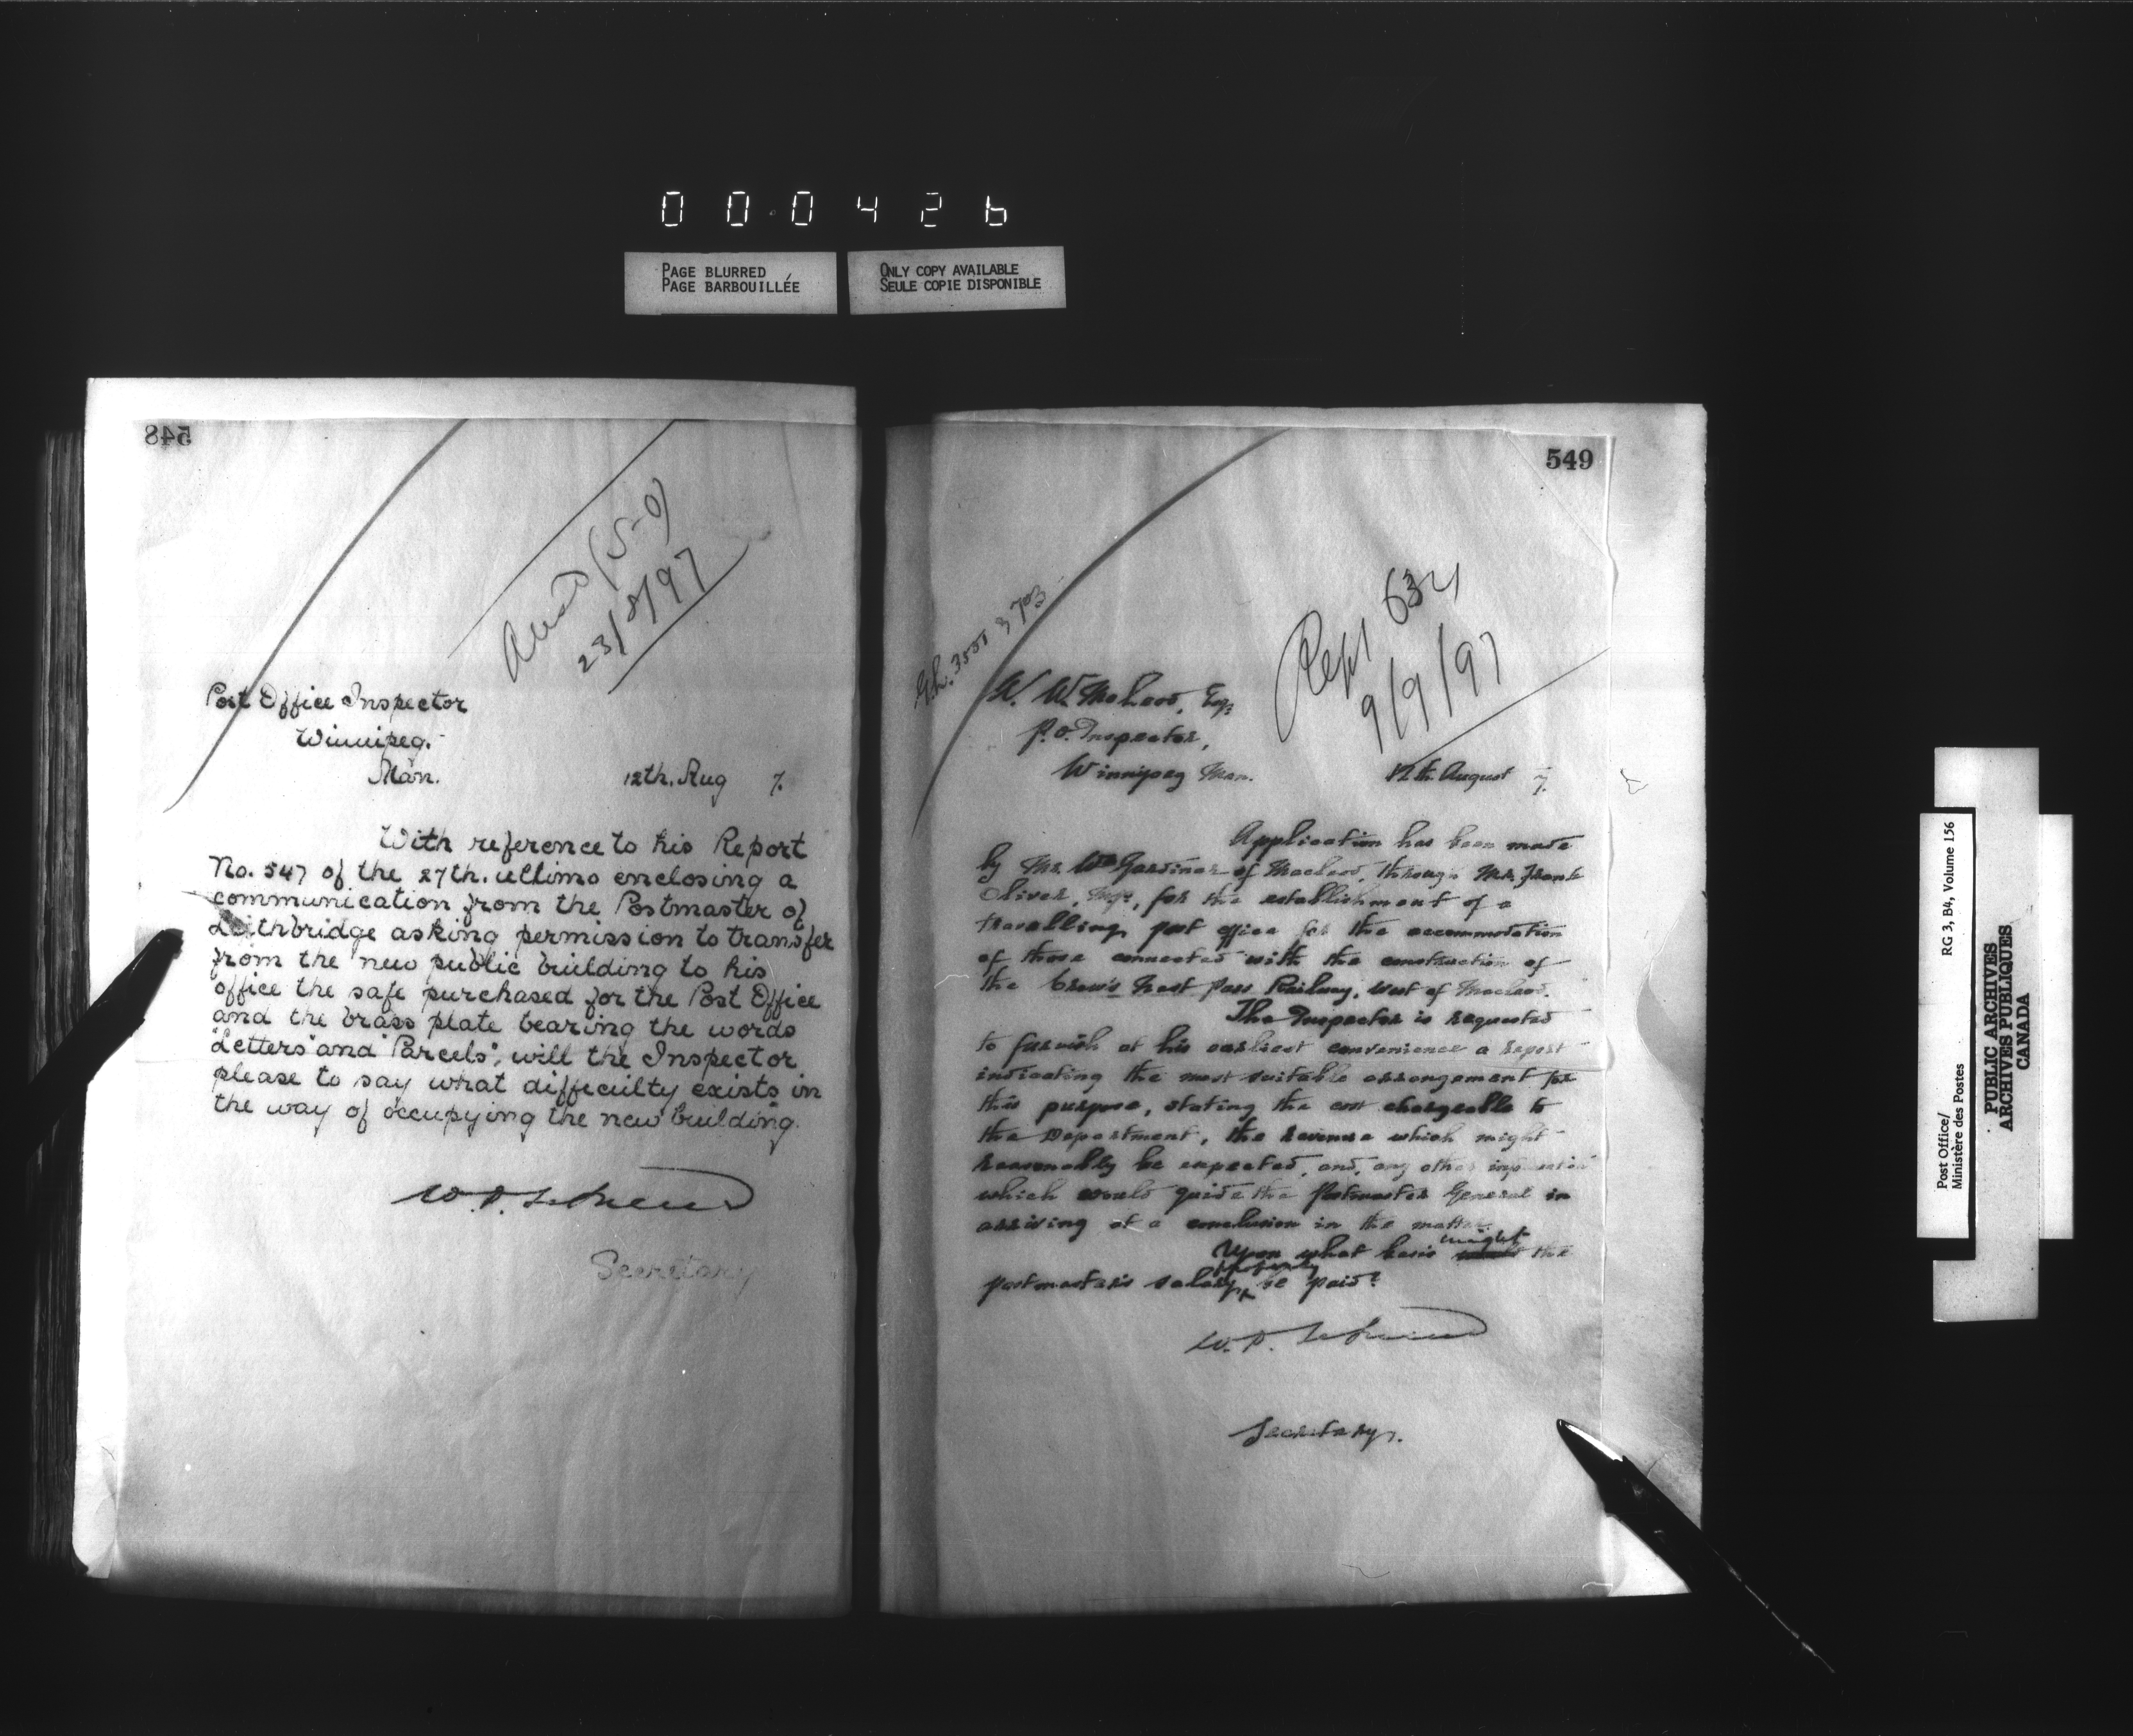 000426
PAGE BLURRED
PAGE BARBOUILLÉE
ONLY COPY AVAILABLE
SEULE COPIE DISPONIBLE
548
(5-0)
23/8/97
Post Office Inspector
Winnipeg.
Man.
12th. Aug 7.
With reference to his Report
No. 547 of the 27th. ultimo enclosing a
communication from the Postmaster of
Lethbridge asking permission to transfer
from the new public building to his
office the safe purchased for the Post Office
and the brass plate bearing the words
"Letters" and "Parcels", will the Inspector
please to say what difficulty exists in
the way of occupying the new building.
Secretary
549
Rept 634
9/9/97
W. W. McLeod, Esq.
P.O. Inspector,
Winnipeg Man.
12th. August 7.
Application has been made
by Mr. Wm Gardiner of Macleod, through Mr. Frank
Oliver, M.P., for the establishment of a
travelling post office for the accommodation
of those connected with the construction of
the Crow's Nest Pass Railway, west of Macleod.
The Inspector is requested
to furnish at his earliest convenience a report
indicating the most suitable arrangement for
this purpose, stating the cost chargeable to
the Department, the revenue which might
reasonably be expected, and, any other information
which would guide the Postmaster General in
arriving at a conclusion in the matter.
Upon what basis might the
postmaster's salary properly be paid?
Secretary.
Post Office/
Ministère des Postes
RG 3, B4, Volume 156
PUBLIC ARCHIVES
ARCHIVES PUBLIQUES
CANADA